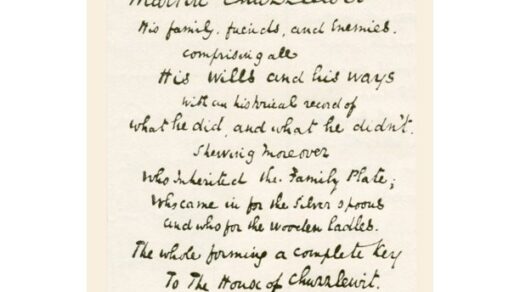 Martin Chuzzlewit
His family, friends, and Enemies.
comprising all
His Wills and his ways
with an historical record of
what he did, and what he didn't.
Shewing Moreover
Who Inherited the Family Plate;
Who came in for the Silver spoons
and who for the Wooden Ladles.
The whole forming a complete Key
To The House of Chuzzlewit.